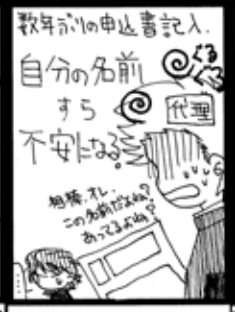 数年ぶりの申込書記入.
自分の名前
すら
不安になる。
ぐる
代理
相棒、オレ、
この名前だよね?
あってるよね?
……